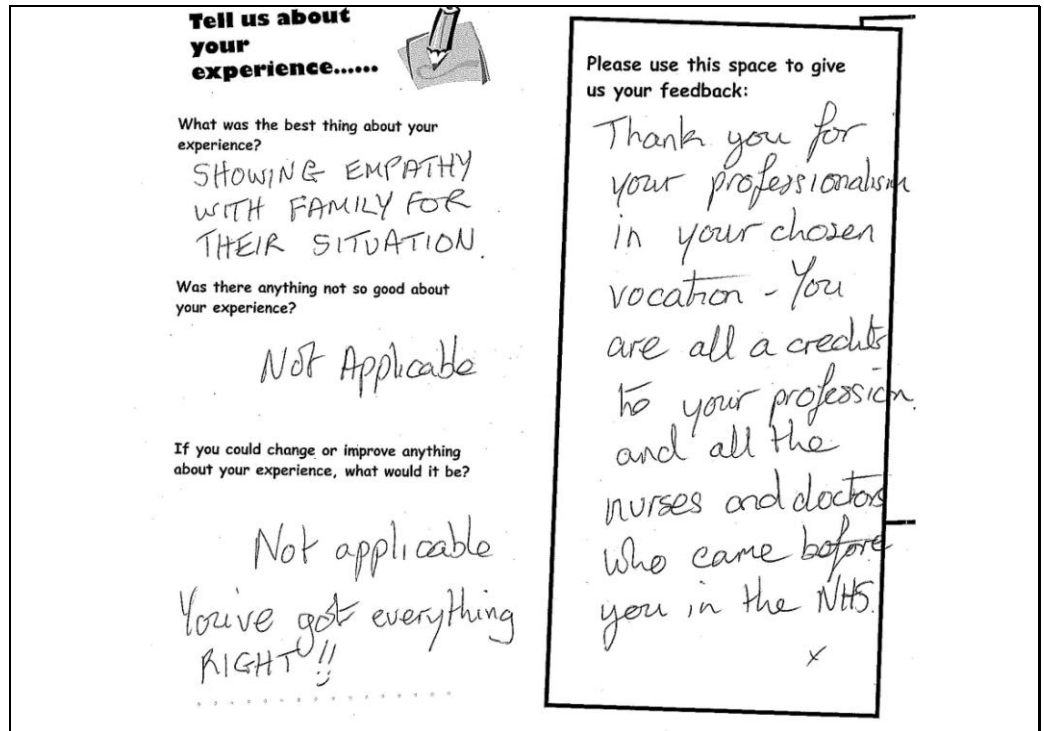 Tell us about
your
experience......
What was the best thing about your
experience?
SHOWING EMPATHY
WITH FAMILY FOR
THEIR SITUATION.
Was there anything not so good about
your experience?
Not Applicable
If you could change or improve anything
about your experience, what would it be?
Not applicable
You've got everything
RIGHT!!
Please use this space to give
us your feedback:
Thank you for
your professionalism
in your chosen
vocation - You
are all a credits
to your profession.
and all the
nurses and doctors
who came before
you in the NHS.
x